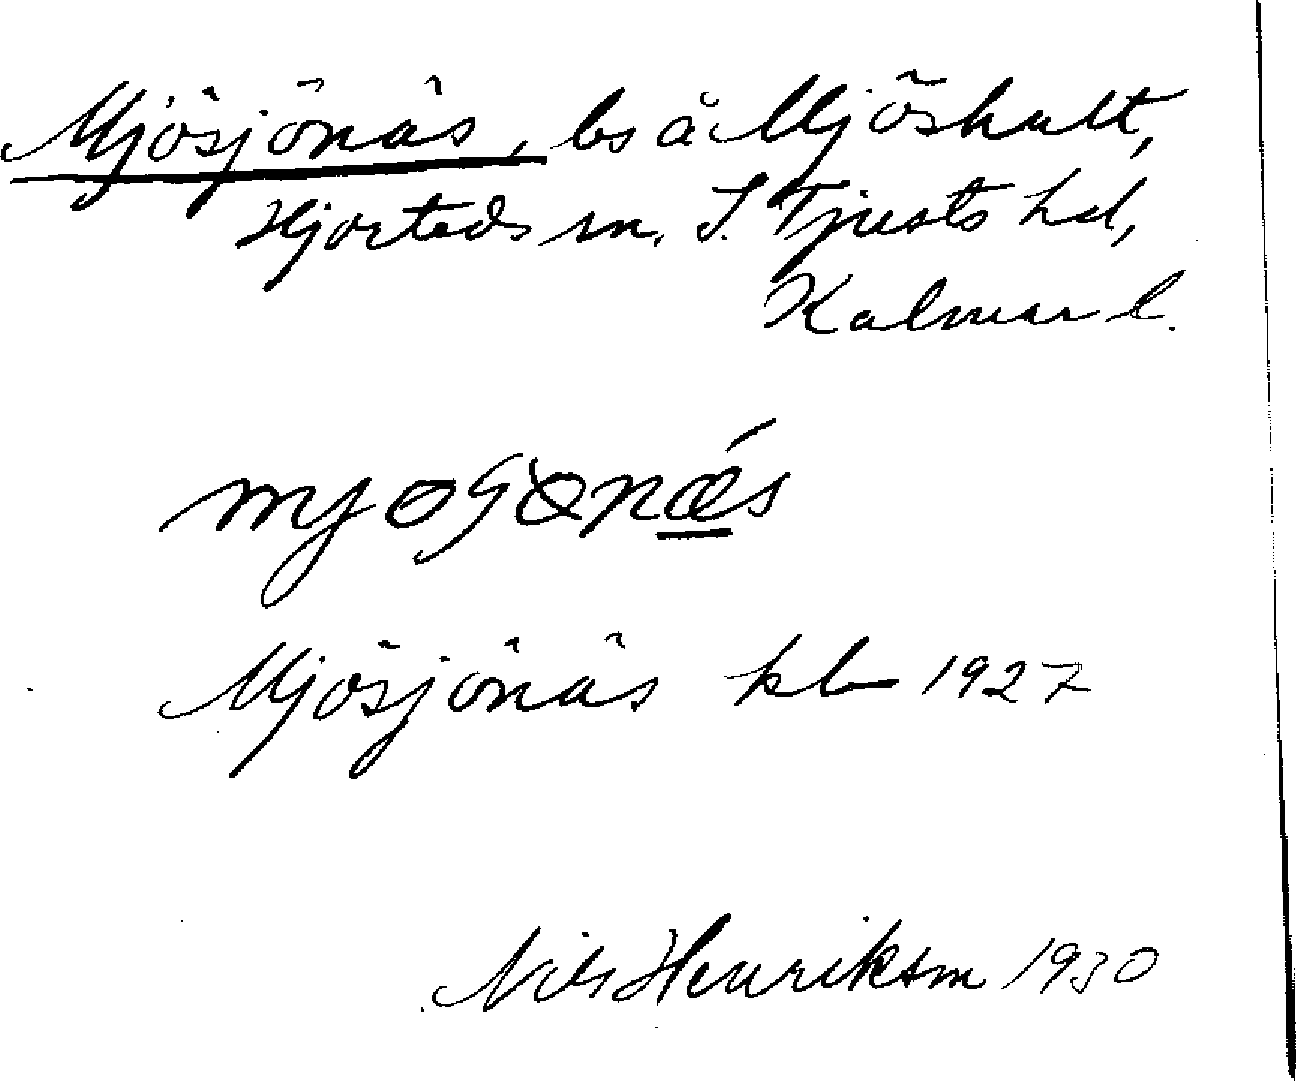 Mjösjönäs, bs å Mjöshult,
Hjorteds sn, S. Tjusts hd,
Kalmar l.
Mjösjönäs kb 1927
Nils Henrikson 1930